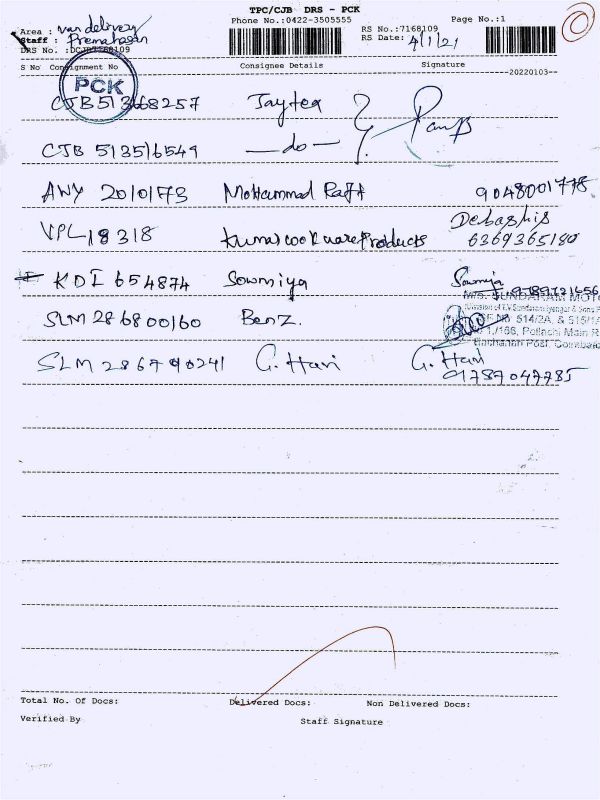 TPC/CJB DRS - PCK
Phone No.:0422-3505555
Page No.:1
Area : van delivery
Staff :
DRS No. :DCJB7168109
RS No.:7168109
RS Date: 4/1/21
S No Consignment No Consignee Details Signature
--20220103--
PCK
CJB513668257 Jaytea
CJB 513516549 —do—
AWY 2010173 Mohammad Rafi 9048001778
VPL18318 Kumar cookware Products Debashis 6369365180
KDI 654874 Sowmiya Sowmiya
M/S. SUNDARAM MOTO
SLM 286800160 Benz.
514/2A, & 515/1A
1/166, Pollachi Main R
Eachanari Post, Coimbato
SLM 286790241 G. Hari G. Hari
Total No. Of Docs: Delivered Docs: Non Delivered Docs:
Verified By Staff Signature